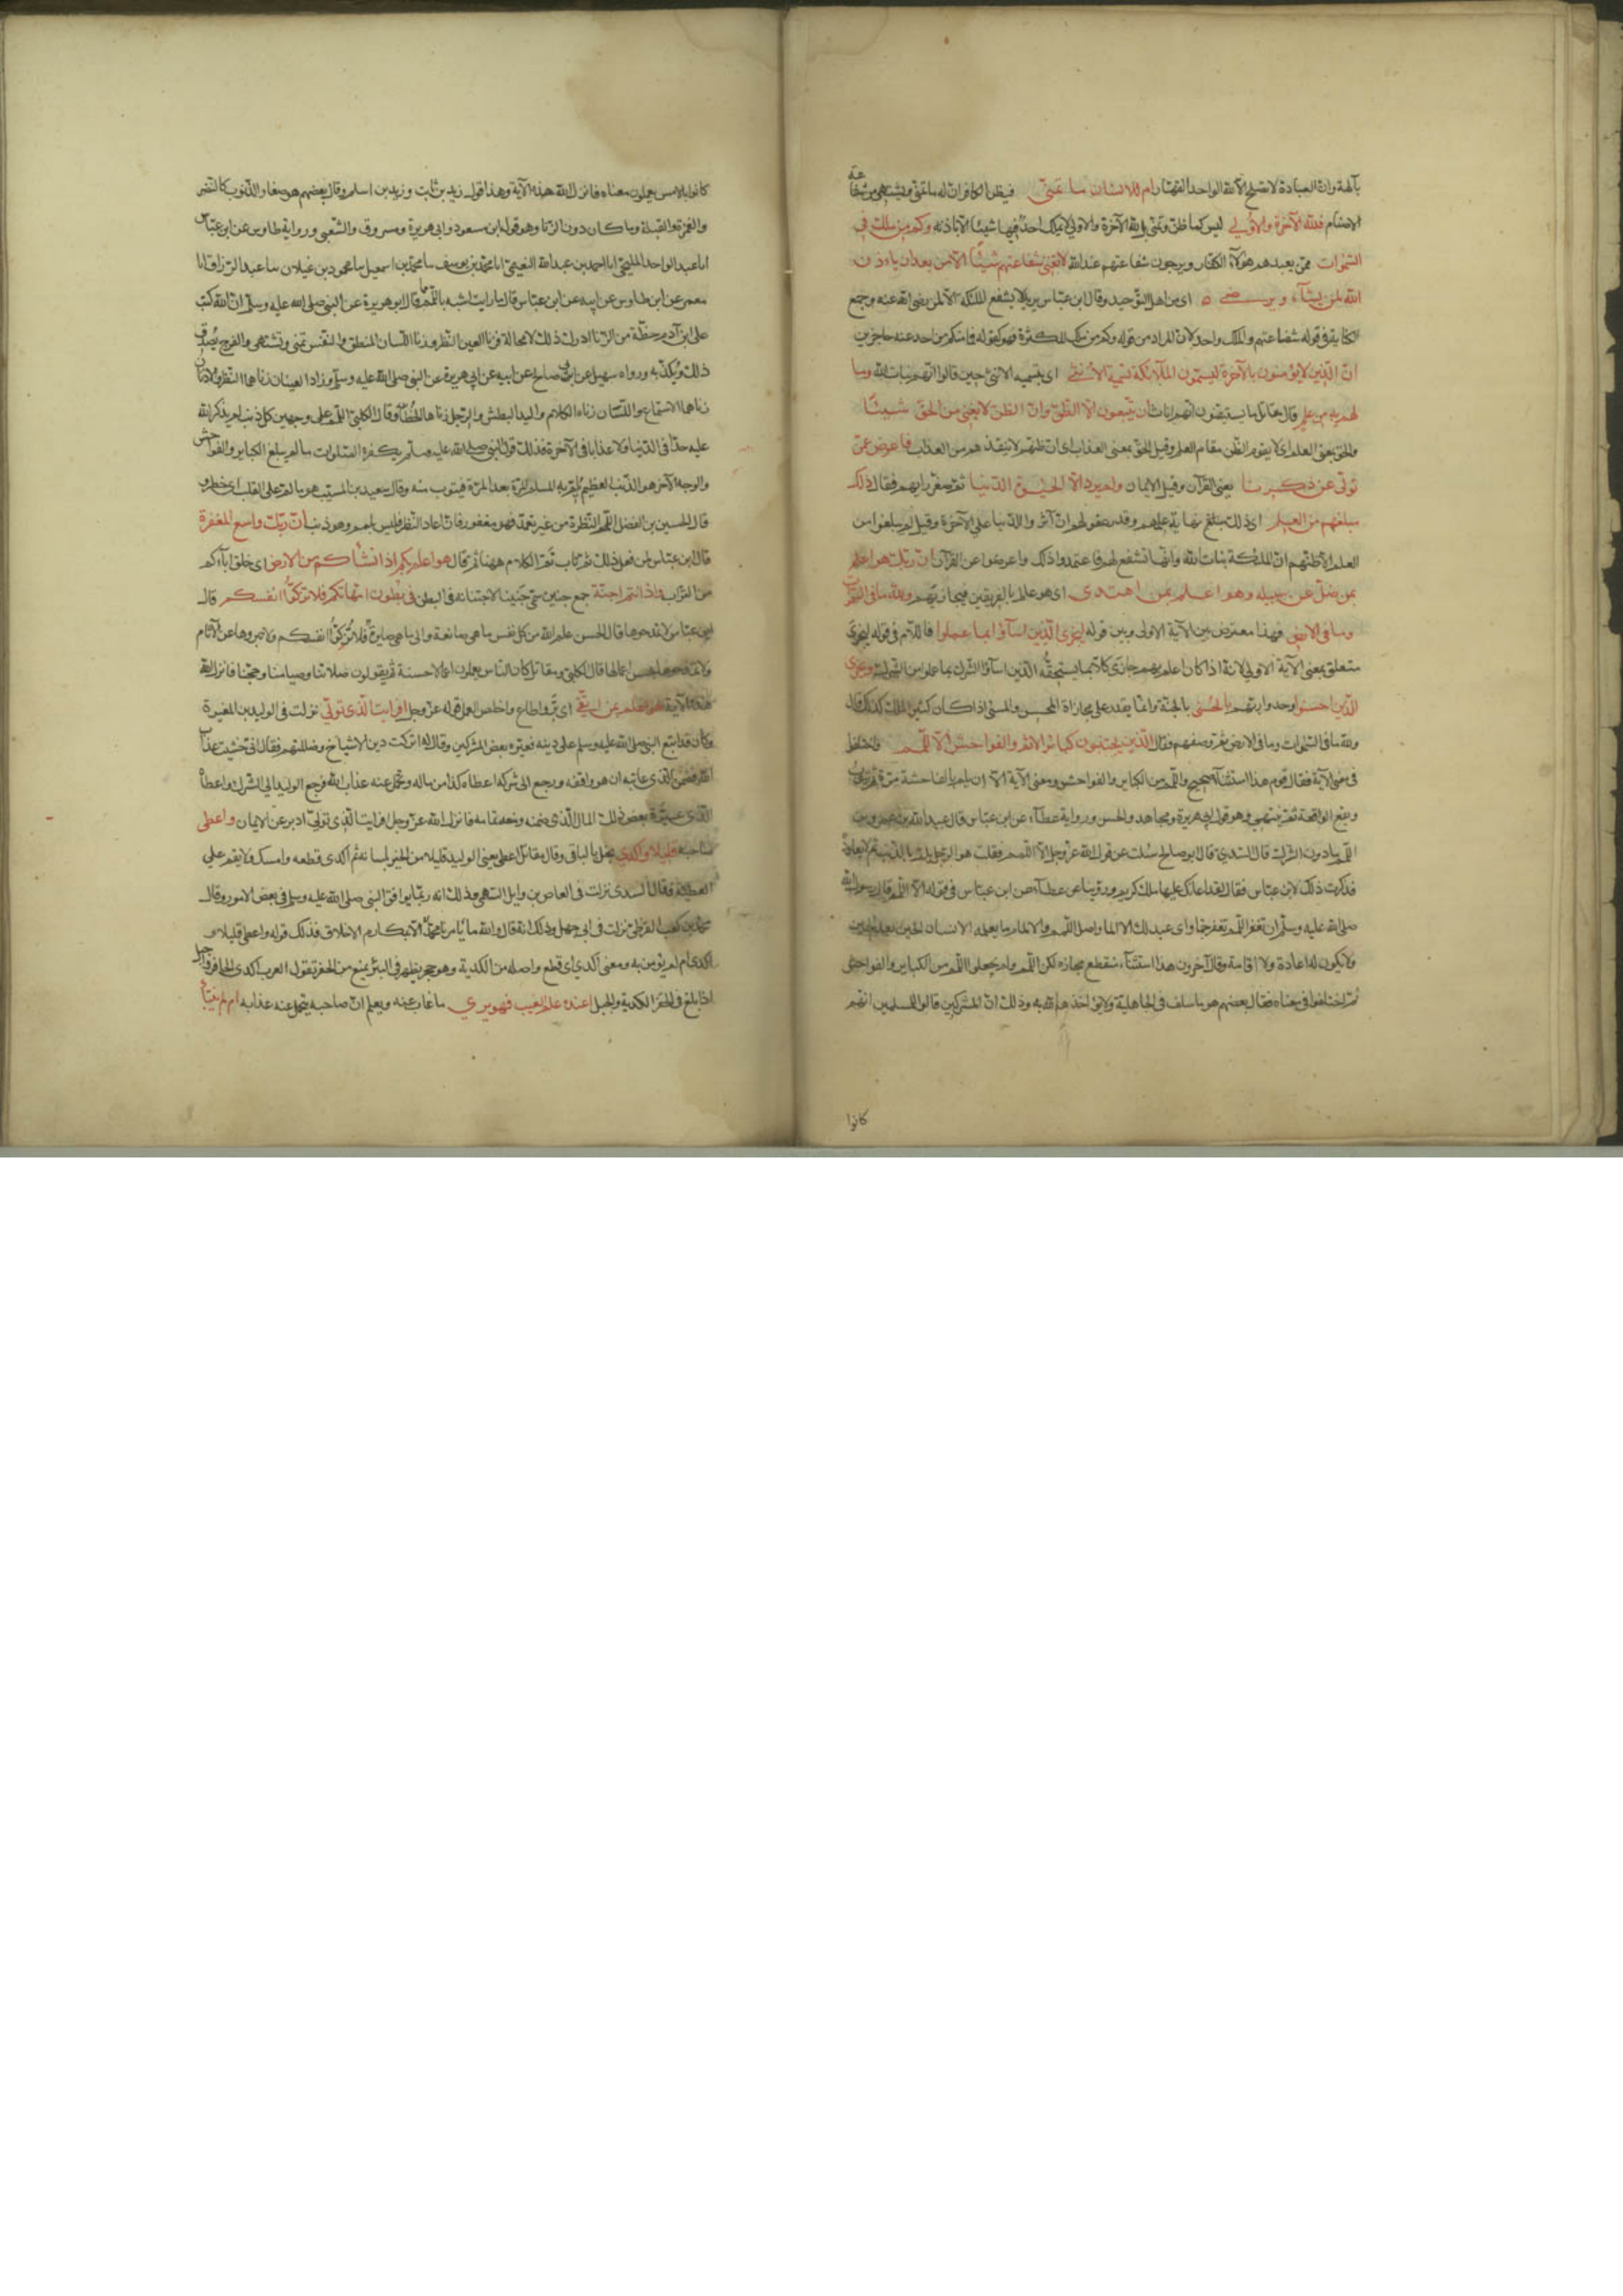 بآلهة وان العبادة لا تصلح الا لله الواحد القهار ام للانسان ما تمنى فيظن الكافر ان له ما تمنى ويشتهى من شفاعة
الاصنام فلله الآخرة والاولى ليس كما ظن وتمنى بل لله الآخرة والاولى لا يملك احد فيهما شيئا الا باذنه وكم من ملك فى
السموات ممن يعبدهم هؤلآء الكفار ويرجون شفاعتهم عند الله لا تغنى شفاعتهم شيئا الا من بعد ان ياذن
الله لمن يشآء ويرضى اى من اهل التوحيد وقال ابن عباس يريد لا يشفع الملئكة الا لمن رضى الله عنه وجمع
الكناية فى قوله شفاعتهم والملك واحد لان المراد من قوله وكم من ملك الكثرة فهو كقوله فما منكم من احد عنه حاجزين
ان الذين لا يؤمنون بالآخرة ليسمون الملآئكة تسمية الانثى اى بتسمية الانثى حين قالوا انهم بنات الله وما
لهم به من علم قال مقاتل ما يستيقنون انهم اناث ان يتبعون الا الظن وان الظن لا يغنى من الحق شيئا
والحق بمعنى العلم اى لا يقوم الظن مقام العلم وقيل الحق بمعنى العذاب اى ان ظنهم لا ينقذهم من العذاب فاعرض عمن
تولى عن ذكرنا يعنى القرآن وقيل الايمان ولم يرد الا الحيوة الدنيا ثم صغر رايهم فقال ذلك
مبلغهم من العلم اى ذلك مبلغ نهاية علمهم وقدر عقولهم ان آثروا الدنيا على الآخرة وقيل لم يبلغوا من
العلم الا ظنهم ان الملئكة بنات الله وانها تشفع لهم فاعتمدوا ذلك واعرضوا عن القرآن ان ربك هو اعلم
بمن ضل عن سبيله وهو اعلم بمن اهتدى اى هو عالم بالفريقين فيجازيهم ولله ما فى السموات
وما فى الارض فهذا معترض بين الآية الاولى وبين قوله ليجزى الذين اسآؤا بما عملوا فاللام فى قوله ليجزى
متعلق بمعنى الآية الاولى لانه اذا كان اعلم بهم جازى كلا بما يستحقه الذين اسآؤا اشركوا بما عملوا من الشرك ويجزى
الذين احسنوا وحدوا ربهم بالحسنى بالجنة وانما يقدر على مجازاة المحسن والمسئ اذا كان كثير الملك كذلك قال
ولله ما فى السموات وما فى الارض ثم وصفهم فقال الذين يجتنبون كبائر الاثم والفواحش الا اللمم واختلفوا
فى معنى الآية فقال قوم هذا استثنآء صحيح واللمم من الكبائر والفواحش ومعنى الآية الا ان يلم بالفاحشة مرة ثم يتوب
ويقع الواقعة ثم ينتهى وهو قول ابى هريرة ومجاهد والحسن ورواية عطآء عن ابن عباس قال عبد الله بن عمرو بن
اللمم ما دون الشرك قال السدى قال ابو صالح سئلت عن قول الله عز وجل الا اللمم فقلت هو الرجل يلم بالذنب ثم لا يعاوده
فذكرت ذلك لابن عباس فقال لقد اعانك عليها ملك كريم وروينا عن عطآء عن ابن عباس فى قوله الا اللمم قال رسول الله
صلى الله عليه وسلم ان تغفر اللهم تغفر جما واى عبد لك لا الما واصل اللمم والالمام ما يعمله الانسان الحين بعد الحين
ولا يكون له اعادة ولا اقامة وقال آخرون هذا استثنآء منقطع مجازه لكن اللمم ولم يجعلوا اللمم من الكبائر والفواحش
ثم اختلفوا فى معناه فقال بعضهم هو ما سلف فى الجاهلية ولا يؤاخذهم الله به وذلك ان المشركين قالوا للمسلمين انهم
كانوا
كانوا بالامس يعملون معنا فانزل الله هذه الآية وهذا قول زيد بن ثابت وزيد بن اسلم وقال بعضهم هو صغار الذنوب كالنظر
والغمزة والقبلة وما كان دون الزنا وهو قول ابن مسعود وابى هريرة ومسروق والشعبى ورواية طاوس عن ابن عباس
انا عبد الواحد المليحى انا احمد بن عبد الله النعيمى انا محمد بن يوسف نا محمد بن اسمعيل نا محمود بن غيلان نا عبد الرزاق انا
معمر عن ابن طاوس عن ابيه عن ابن عباس قال ما رايت اشبه باللمم مما قال ابو هريرة عن النبى صلى الله عليه وسلم ان الله كتب
على ابن آدم حظه من الزنا ادرك ذلك لا محالة فزنا العين النظر وزنا اللسان المنطق والنفس تمنى وتشتهى والفرج يصدق
ذلك ويكذبه ورواه سهيل عن ابى صالح عن ابيه عن ابى هريرة عن النبى صلى الله عليه وسلم وزاد العينان زناهما النظر والاذنان
زناهما الاستماع واللسان زناه الكلام واليد البطش والرجل زناها الخطا وقال الكلبى اللمم على وجهين كل ذنب لم يذكر الله
عليه حدا فى الدنيا ولا عذابا فى الآخرة فذلك قول النبى صلى الله عليه وسلم يكفره الصلوات ما لم يبلغ الكباير والفواحش
والوجه الآخر هو الذنب العظيم يلم به المسلم المرة بعد المرة فيتوب منه وقال سعيد بن المسيب هو ما لم على القلب اى خطر
قال الحسين بن الفضل اللمم النظرة من غير تعمد فهو مغفور فان اعاد النظر فليس بلمم وهو ذنب ان ربك واسع المغفرة
قال ابن عباس لمن فعل ذلك ثم تاب تم الكلام ههنا ثم قال هو اعلم بكم اذ انشأكم من الارض اى خلق اباءكم
من التراب واذ انتم اجنة جمع جنين سمى جنينا لاجتنانه فى البطن فى بطون امهاتكم فلا تزكوا انفسكم قال
ابن عباس لا تمدحوها قال الحسن علم الله من كل نفس ما هى صانعة والى ما هى صايرة فلا تزكوا انفسكم ولا تبروها عن الآثام
ولا تمدحوها بحسن اعمالها قال الكلبى ومقاتل كان الناس يعملون اعمالا حسنة ثم يقولون صلاتنا وصيامنا وحجنا فانزل الله
هذه الآية هو اعلم بمن اتقى اى بر واطاع واخلص العمل قوله عز وجل افرايت الذى تولى نزلت فى الوليد بن المغيرة
وكان قد اتبع النبى صلى الله عليه وسلم على دينه فعيره بعض المشركين وقال له اتركت دين الاشياخ وضللتهم فقال انى خشيت عذاب
الله فضمن الذى عاتبه ان هو وافقه ورجع الى شركه اعطاه كذا من ماله وتحمل عنه عذاب الله فرجع الوليد الى الشرك واعطاه
الذى عيره بعض ذلك المال الذى ضمنه ومنعه تمامه فانزل الله عز وجل افرايت الذى تولى ادبر عن الايمان واعطى
صاحبه قليلا واكدى بخل بالباقى وقال مقاتل اعطى يعنى الوليد قليلا من الخير بلسانه ثم اكدى قطعه وامسك ولم يقم على
العطية وقال السدى نزلت فى العاص بن وايل السهمى وذلك انه ربما يوافق النبى صلى الله عليه وسلم فى بعض الامور وقال
محمد بن كعب القرظى نزلت فى ابى جهل وذلك انه قال والله ما يأمرنا محمد الا بمكارم الاخلاق فذلك قوله واعطى قليلا و
اكدى ام لم يؤمن به ومعنى اكدى اى قطع واصله من الكدية وهو حجر يظهر فى البئر يمنع من الحفر تقول العرب اكدى الحافر واجبل
اذا بلغ فى الحفر الكدية والجبل اعنده علم الغيب فهو يرى ما غاب عنه ويعلم ان صاحبه يتحمل عنه عذابه ام لم ينبأ